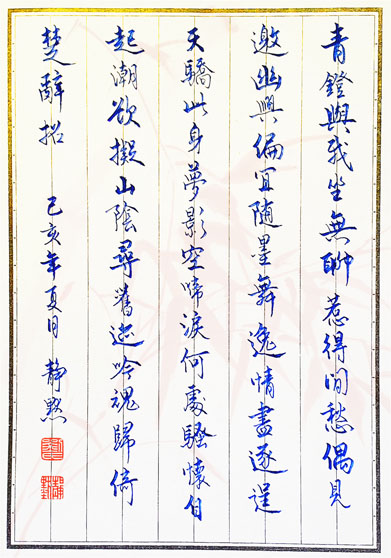 青鐙與我坐無聊惹得閒愁偶見
邀幽興偏宜随墨舞逸情盡逐逞
天驕此身夢影空啼淚何處騷懷自
起潮欲擬山陰尋舊迹吟魂歸倚
楚辭招 己亥年夏日 静默